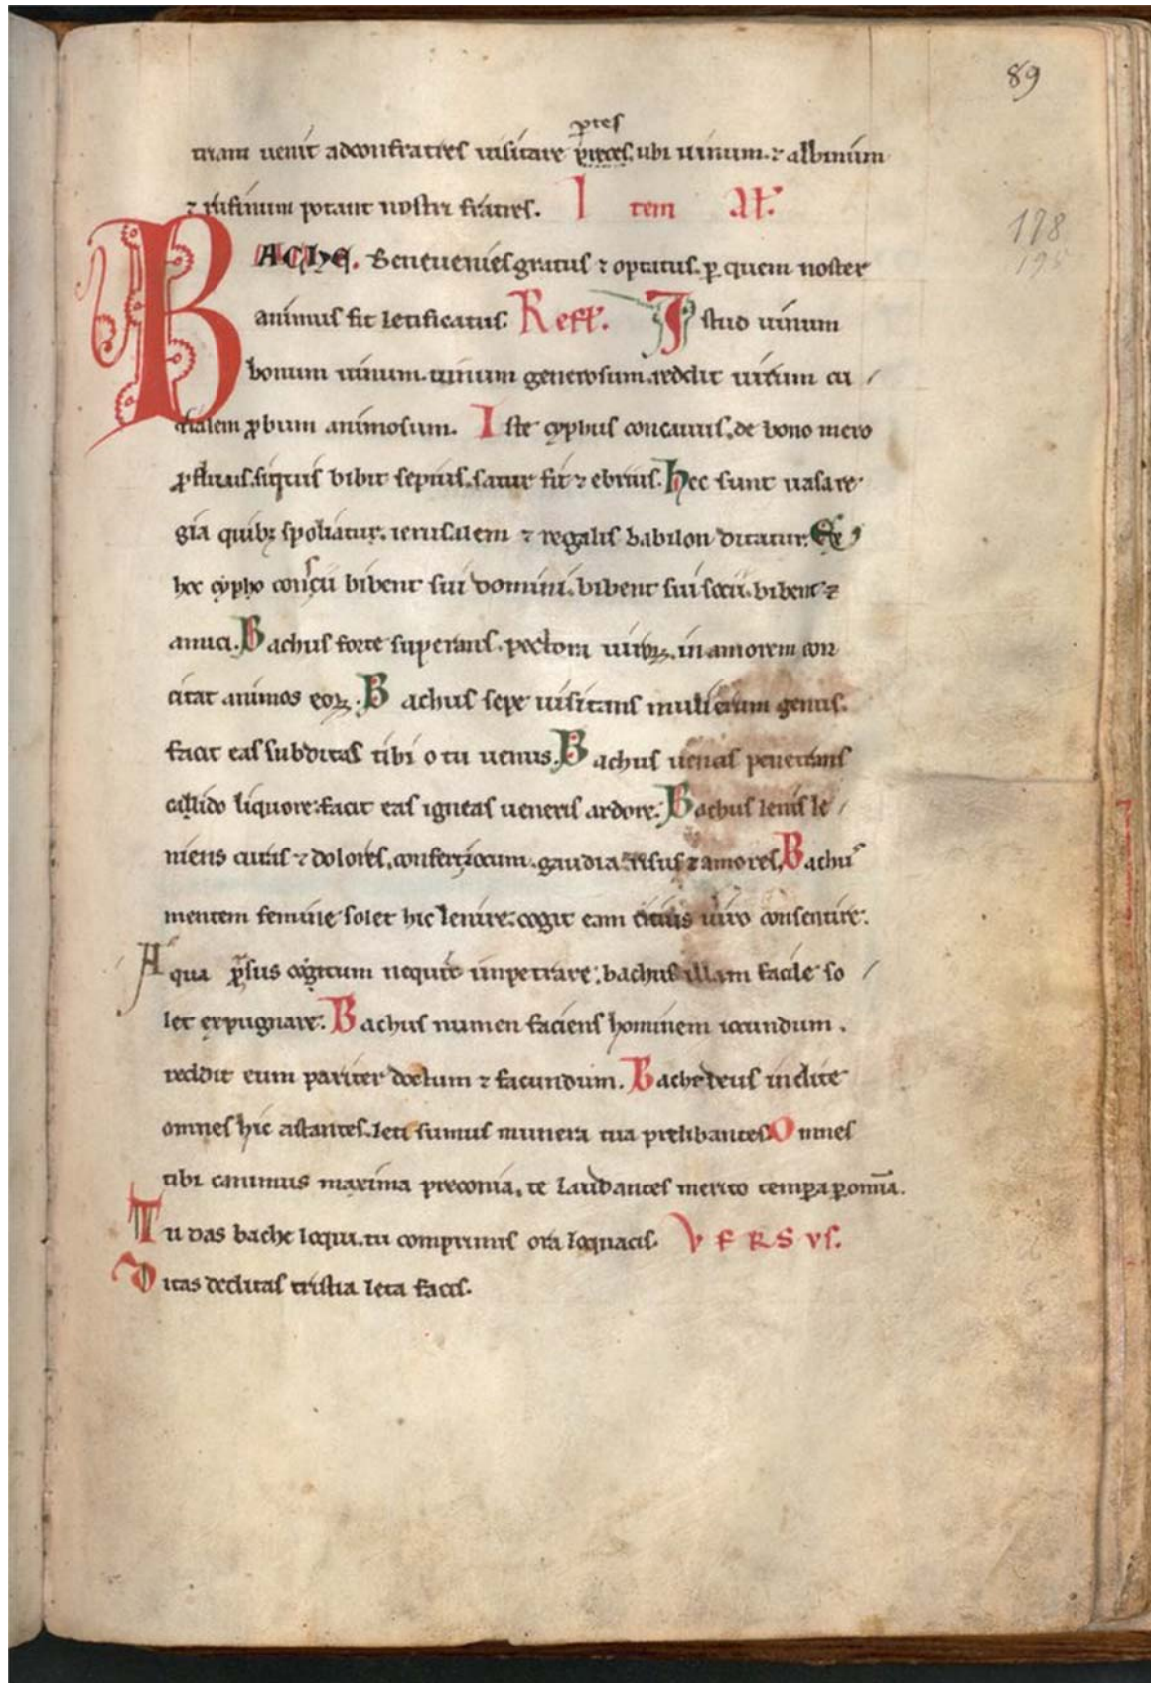 89
ptes
triam uenit adconfratres uisitare ptes. ubi uinum. ⁊ albinum
⁊ rufinum potant nostri fratres. Item Al'.
178
195
BACHE. Beneuenies gratus ⁊ optatus. p quem noster
animus fit letificatus. Reff. Istud uinum
bonum uinum. uinum generosum. reddit uirum cu /
rialem pbum animosum. Iste cyphus concauus. de bono mero
pfluus. siquis bibit sepius. satur fit ⁊ ebrius. Hec sunt uasa re
gia quibꝫ spoliatur. ierusalem ⁊ regalis babilon ditatur. Ex
hoc cypho conscii bibent sui domini. bibent sui socii. bibent ⁊
amici. Bachus forte superans. pectora uiroꝝ. in amorem con
citat animos eoꝝ. Bachus sepe uisitans mulierum genus.
facit eas subditas tibi o tu uenus. Bachus uenas penetrans
callido liquore. facit eas igneas ueneris ardore. Bachus lenis le /
niens curas ⁊ dolores. confert iocum. gaudia risus ⁊ amores. Bachus
mentem femine solet hic lenire. cogit eam citius uiro consentire.
Aqua psus cogitum nequit impetrare. bachus illam facile so /
let expugnare. Bachus numen faciens hominem iocundum.
reddit eum pariter doctum ⁊ facundum. Bache deus inclite
omnes hic astantes. leti sumus munera tua prelibantes. Omnes
tibi canimus maxima preconia. te laudantes merito tempa p omīa.
Tu das bache loqui. tu comprimis ora loquacis. VERSVS.
Ditas deditas tristia leta facis.